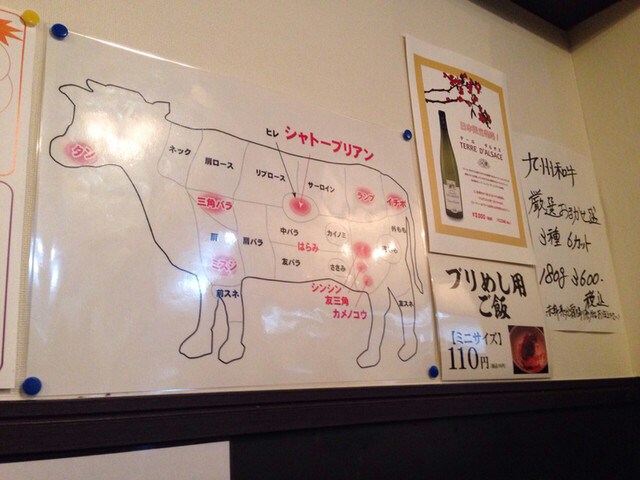 タン
ネック
肩ロース
リブロース
ヒレ
シャトーブリアン
サーロイン
ランプ
イチボ
三角バラ
肩バラ
ミスジ
前スネ
中バラ
はらみ
友バラ
カイノミ
ささみ
シンシン
友三角
カメノコウ
友スネ
TERRE D'ALSACE
ブリめし用
ご飯
【ミニサイズ】
110円
九州和牛
厳選おまかせ盛
3種 6カット
180g 3600-
税込